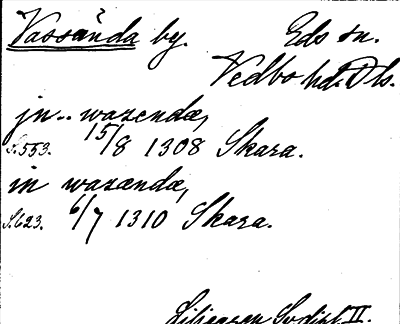 Vassända by. Eds sn.
Vedbo hd. Dls.
jn.. wazendæ,
S.553. 15/8 1308 Skara.
in wazændæ,
S.623. 6/7 1310 Skara.
Liljegren Sv.dipl. II.